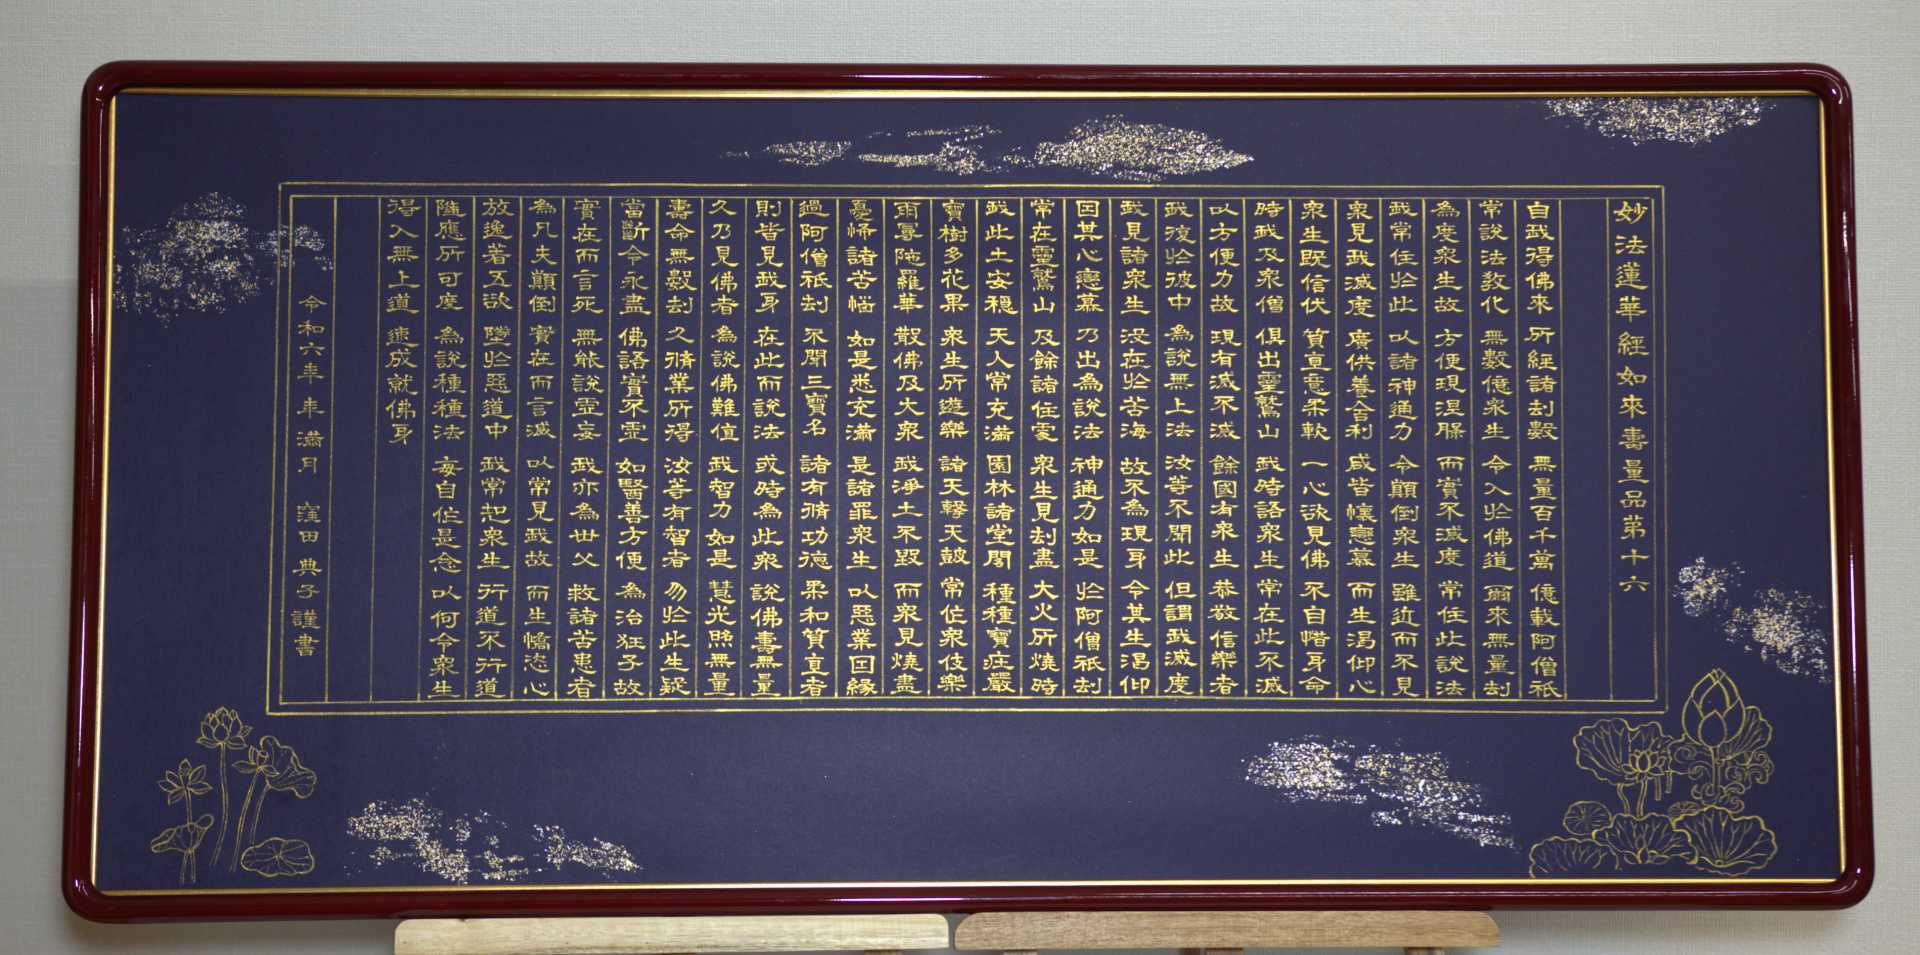 妙法蓮華經如來壽量品苐十六
自我得佛來 所經諸劫數 無量百千萬 億載阿僧祇
常說法教化 無數億衆生 令入於佛道 爾來無量劫
為度衆生故 方便現涅槃 而實不滅度 常住此說法
我常住於此 以諸神通力 令顛倒衆生 雖近而不見
衆見我滅度 廣供養舎利 咸皆懐戀慕 而生渴仰心
衆生既信伏 質直意柔軟 一心欲見佛 不自惜身命
時我及衆僧 俱出靈鷲山 我時語衆生 常在此不滅
以方便力故 現有滅不滅 餘國有衆生 恭敬信樂者
我復於彼中 為說無上法 汝等不聞此 但謂我滅度
我見諸衆生 沒在於苦海 故不為現身 令其生渴仰
因其心戀慕 乃出為說法 神通力如是 於阿僧祇劫
常在靈鷲山 及餘諸住處 衆生見劫盡 大火所燒時
我此土安穩 天人常充滿 園林諸堂閣 種種寶莊嚴
寶樹多花果 衆生所遊樂 諸天擊天鼓 常作衆伎樂
雨曼陀羅華 散佛及大衆 我淨土不毀 而衆見燒盡
憂怖諸苦惱 如是悉充滿 是諸罪衆生 以惡業因緣
過阿僧祇劫 不聞三寶名 諸有脩功德 柔和質直者
則皆見我身 在此而說法 或時為此衆 說佛壽無量
久乃見佛者 為說佛難值 我智力如是 慧光照無量
壽命無數劫 久脩業所得 汝等有智者 勿於此生疑
當斷令永盡 佛語實不虛 如醫善方便 為治狂子故
實在而言死 無能說虛妄 我亦為世父 救諸苦患者
為凡夫顛倒 實在而言滅 以常見我故 而生憍恣心
放逸著五欲 墮於惡道中 我常知衆生 行道不行道
隨應所可度 為說種種法 每自作是念 以何令衆生
得入無上道 速成就佛身
令和六年 年 滿月 窪田 典子 謹書